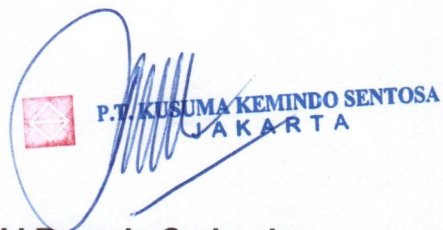 P.T. KUSUMA KEMINDO SENTOSA
JAKARTA